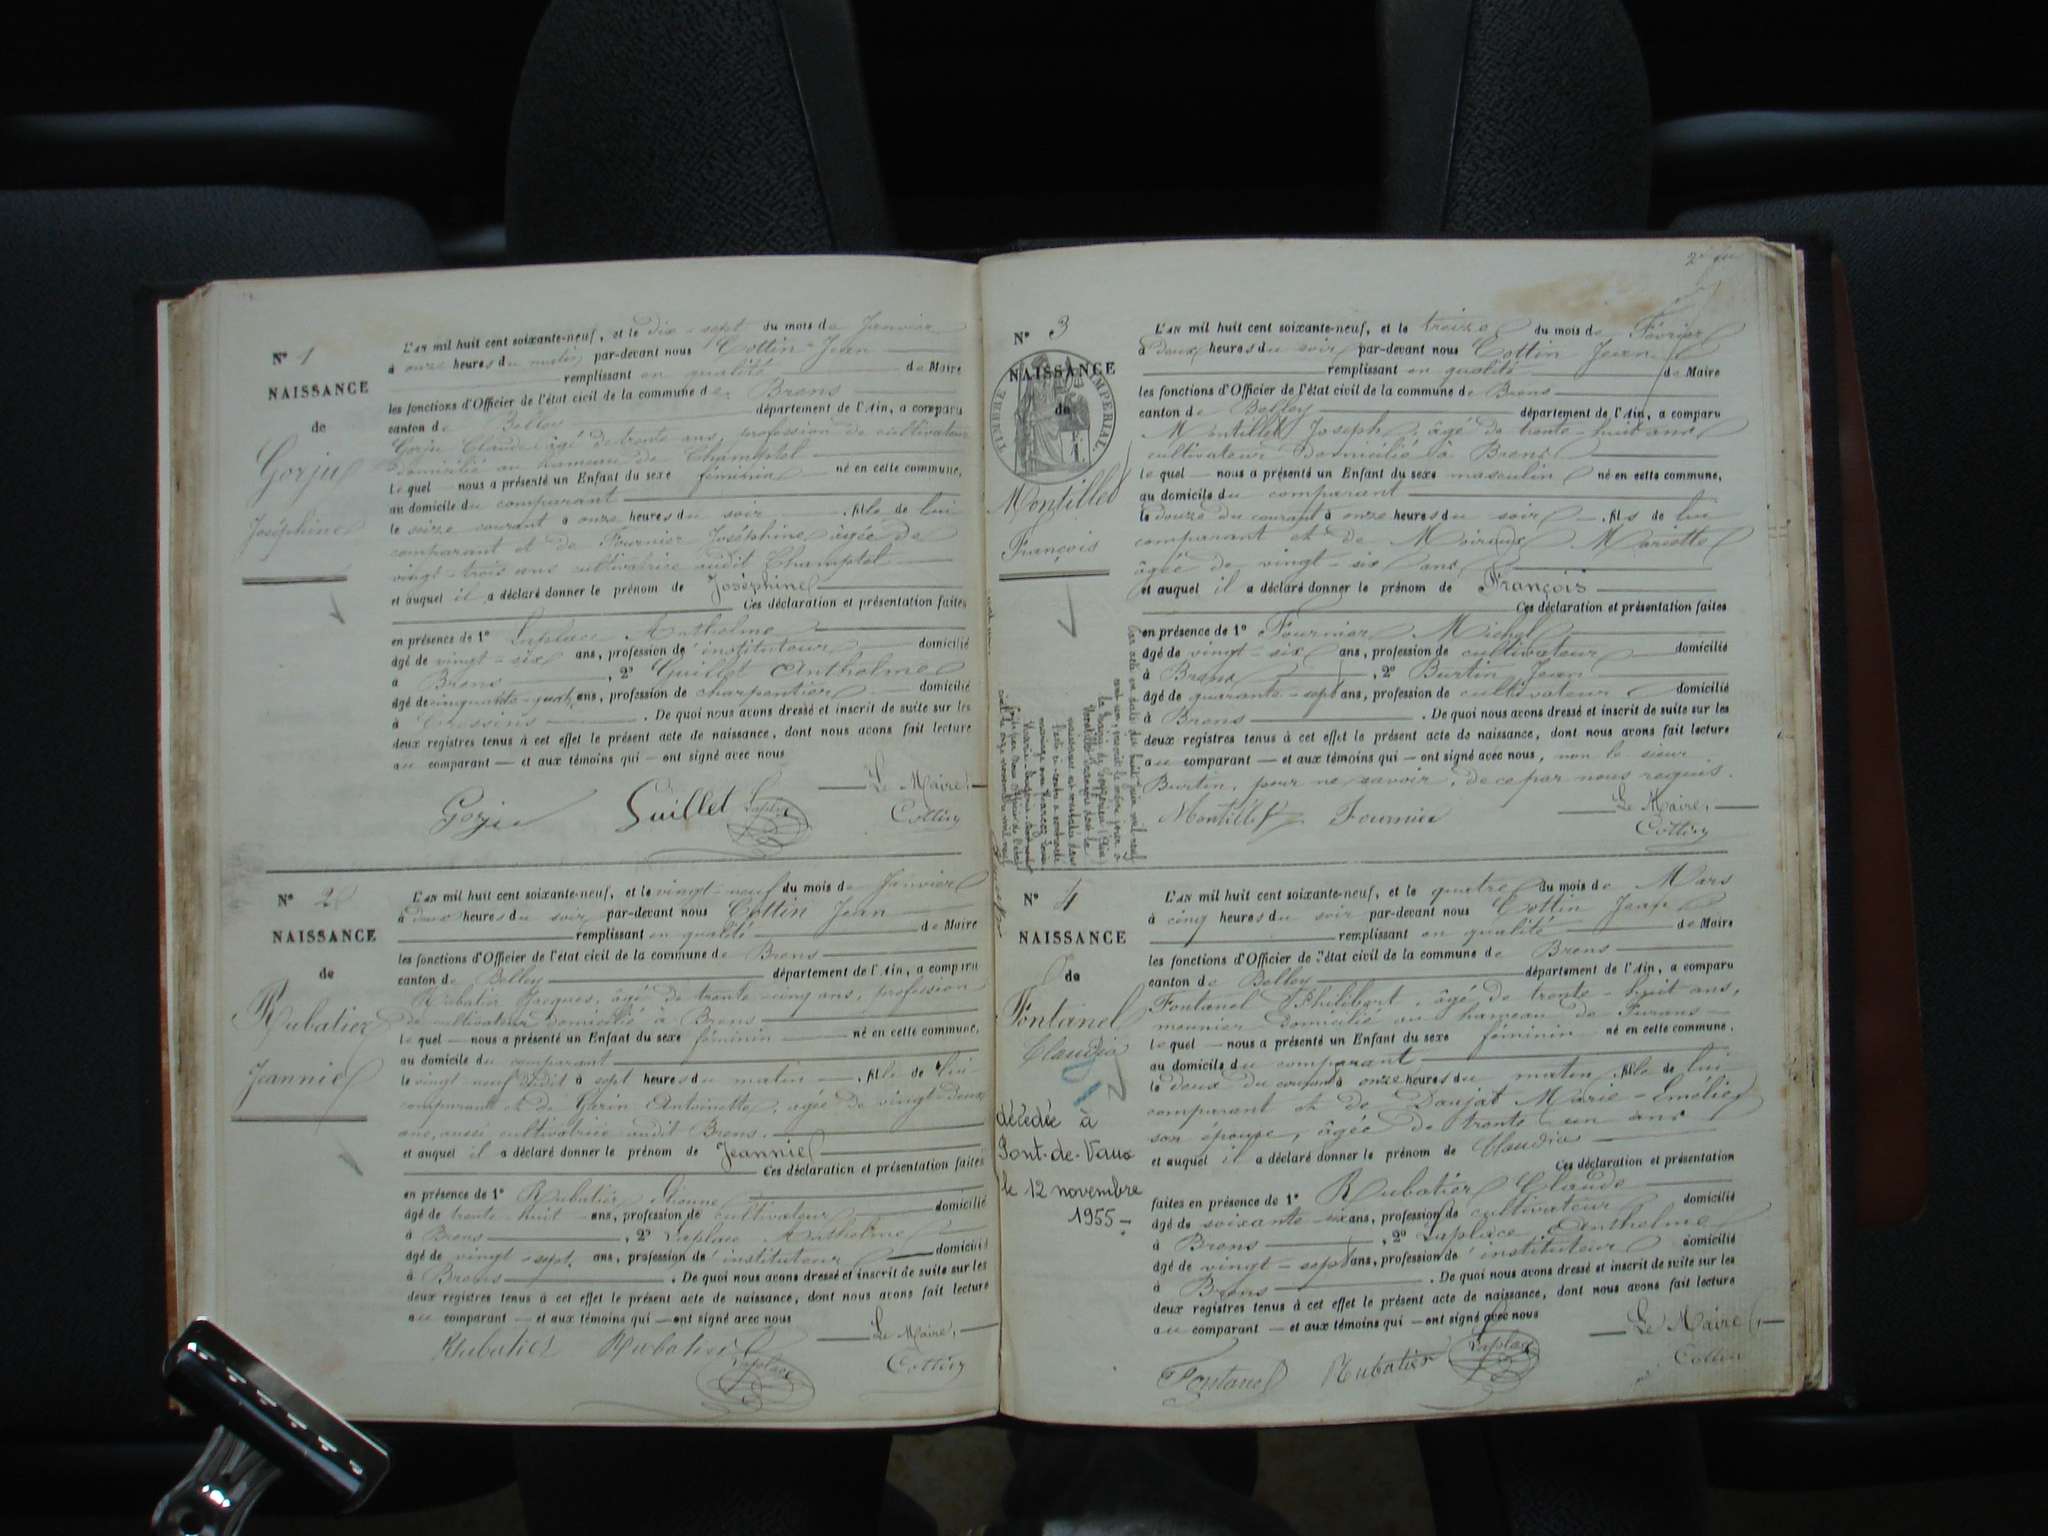 N° 1
NAISSANCE
de
Gorju
Joséphine
L'AN mil huit cent soixante-neuf, et le dix-sept du mois de Janvier
à onze heures du matin par-devant nous Cottin Jean
remplissant en qualité de Maire
les fonctions d'Officier de l'état civil de la commune de Brens
canton de Belley département de l'Ain, a comparu
Gorju Claude âgé de trente ans, profession de cultivateur
domicilié au hameau de Champtel
lequel nous a présenté un Enfant du sexe féminin né en cette commune,
au domicile du comparant
le seize courant à onze heures du soir, fille de lui
comparant et de Fournier Joséphine âgée de
vingt-trois ans cultivatrice audit Champtel
et auquel il a déclaré donner le prénom de Joséphine
Ces déclaration et présentation faites
en présence de 1° Laplace Anthelme
âgé de vingt-six ans, profession d'instituteur domicilié
à Brens, 2° Guillet Anthelme
âgé de cinquante-quatre ans, profession de charpentier domicilié
à Cressins. De quoi nous avons dressé et inscrit de suite sur les
deux registres tenus à cet effet le présent acte de naissance, dont nous avons fait lecture
au comparant et aux témoins qui ont signé avec nous
Le Maire,
Gorju Guillet Laplace Cottin
N° 2
NAISSANCE
de
Rubatier
Jeannie
L'AN mil huit cent soixante-neuf, et le vingt-neuf du mois de Janvier
à deux heures du soir par-devant nous Cottin Jean
remplissant en qualité de Maire
les fonctions d'Officier de l'état civil de la commune de Brens
canton de Belley département de l'Ain, a comparu
Rubatier Jacques, âgé de trente-cinq ans, profession
de cultivateur domicilié à Brens
lequel nous a présenté un Enfant du sexe féminin né en cette commune,
au domicile du comparant
le vingt-neuf dudit à sept heures du matin, fille de lui
comparant et de Garin Antoinette, agée de vingt-deux
ans, aussi cultivatrice audit Brens.
et auquel il a déclaré donner le prénom de Jeannie
Ces déclaration et présentation faites
en présence de 1° Rubatier Etienne
âgé de trente-huit ans, profession de cultivateur domicilié
à Brens, 2° Laplace Anthelme
âgé de vingt-sept ans, profession d'instituteur domicilié
à Brens. De quoi nous avons dressé et inscrit de suite sur les
deux registres tenus à cet effet le présent acte de naissance, dont nous avons fait lecture
au comparant et aux témoins qui ont signé avec nous
Le Maire,
Rubatier Rubatier Laplace Cottin
N° 3
TIMBRE IMPERIAL
NAISSANCE
de
Montillet
François
L'AN mil huit cent soixante-neuf, et le treize du mois de Février
à deux heures du soir par-devant nous Cottin Jean
remplissant en qualité de Maire
les fonctions d'Officier de l'état civil de la commune de Brens
canton de Belley département de l'Ain, a comparu
Montillet Joseph, âgé de trente-huit ans
cultivateur domicilié à Brens
lequel nous a présenté un Enfant du sexe masculin né en cette commune,
au domicile du comparant
le douze du courant à onze heures du soir, fils de lui
comparant et de Mariette
âgée de vingt-six ans
et auquel il a déclaré donner le prénom de François
Ces déclaration et présentation faites
en présence de 1° Fournier Michel
âgé de vingt-six ans, profession de cultivateur domicilié
à Brens, 2° Burtin Jean
âgé de quarante-sept ans, profession de cultivateur domicilié
à Brens. De quoi nous avons dressé et inscrit de suite sur les
deux registres tenus à cet effet le présent acte de naissance, dont nous avons fait lecture
au comparant et aux témoins qui ont signé avec nous, non le sieur
Burtin, pour ne savoir, de ce par nous requis.
Le Maire,
Montillet Fournier Cottin
N° 4
NAISSANCE
de
Fontanel
Claudia
décédée à
Pont-de-Vaux
le 12 novembre
1955
L'AN mil huit cent soixante-neuf, et le quatre du mois de Mars
à cinq heures du soir par-devant nous Cottin Jean
remplissant en qualité de Maire
les fonctions d'Officier de l'état civil de la commune de Brens
canton de Belley département de l'Ain, a comparu
Fontanel Philibert, âgé de trente-huit ans,
meunier domicilié au hameau de Furans
lequel nous a présenté un Enfant du sexe féminin né en cette commune,
au domicile du comparant
le deux du courant à onze heures du matin, fille de lui
comparant et de Daujat Marie-Emélie
son épouse, âgée de trente-un ans
et auquel il a déclaré donner le prénom de Claudia
Ces déclaration et présentation
faites en présence de 1° Rubatier Claude
âgé de soixante-six ans, profession de cultivateur domicilié
à Brens, 2° Laplace Anthelme
âgé de vingt-sept ans, profession d'instituteur domicilié
à Brens. De quoi nous avons dressé et inscrit de suite sur les
deux registres tenus à cet effet le présent acte de naissance, dont nous avons fait lecture
au comparant et aux témoins qui ont signé avec nous
Le Maire,
Fontanel Rubatier Laplace Cottin